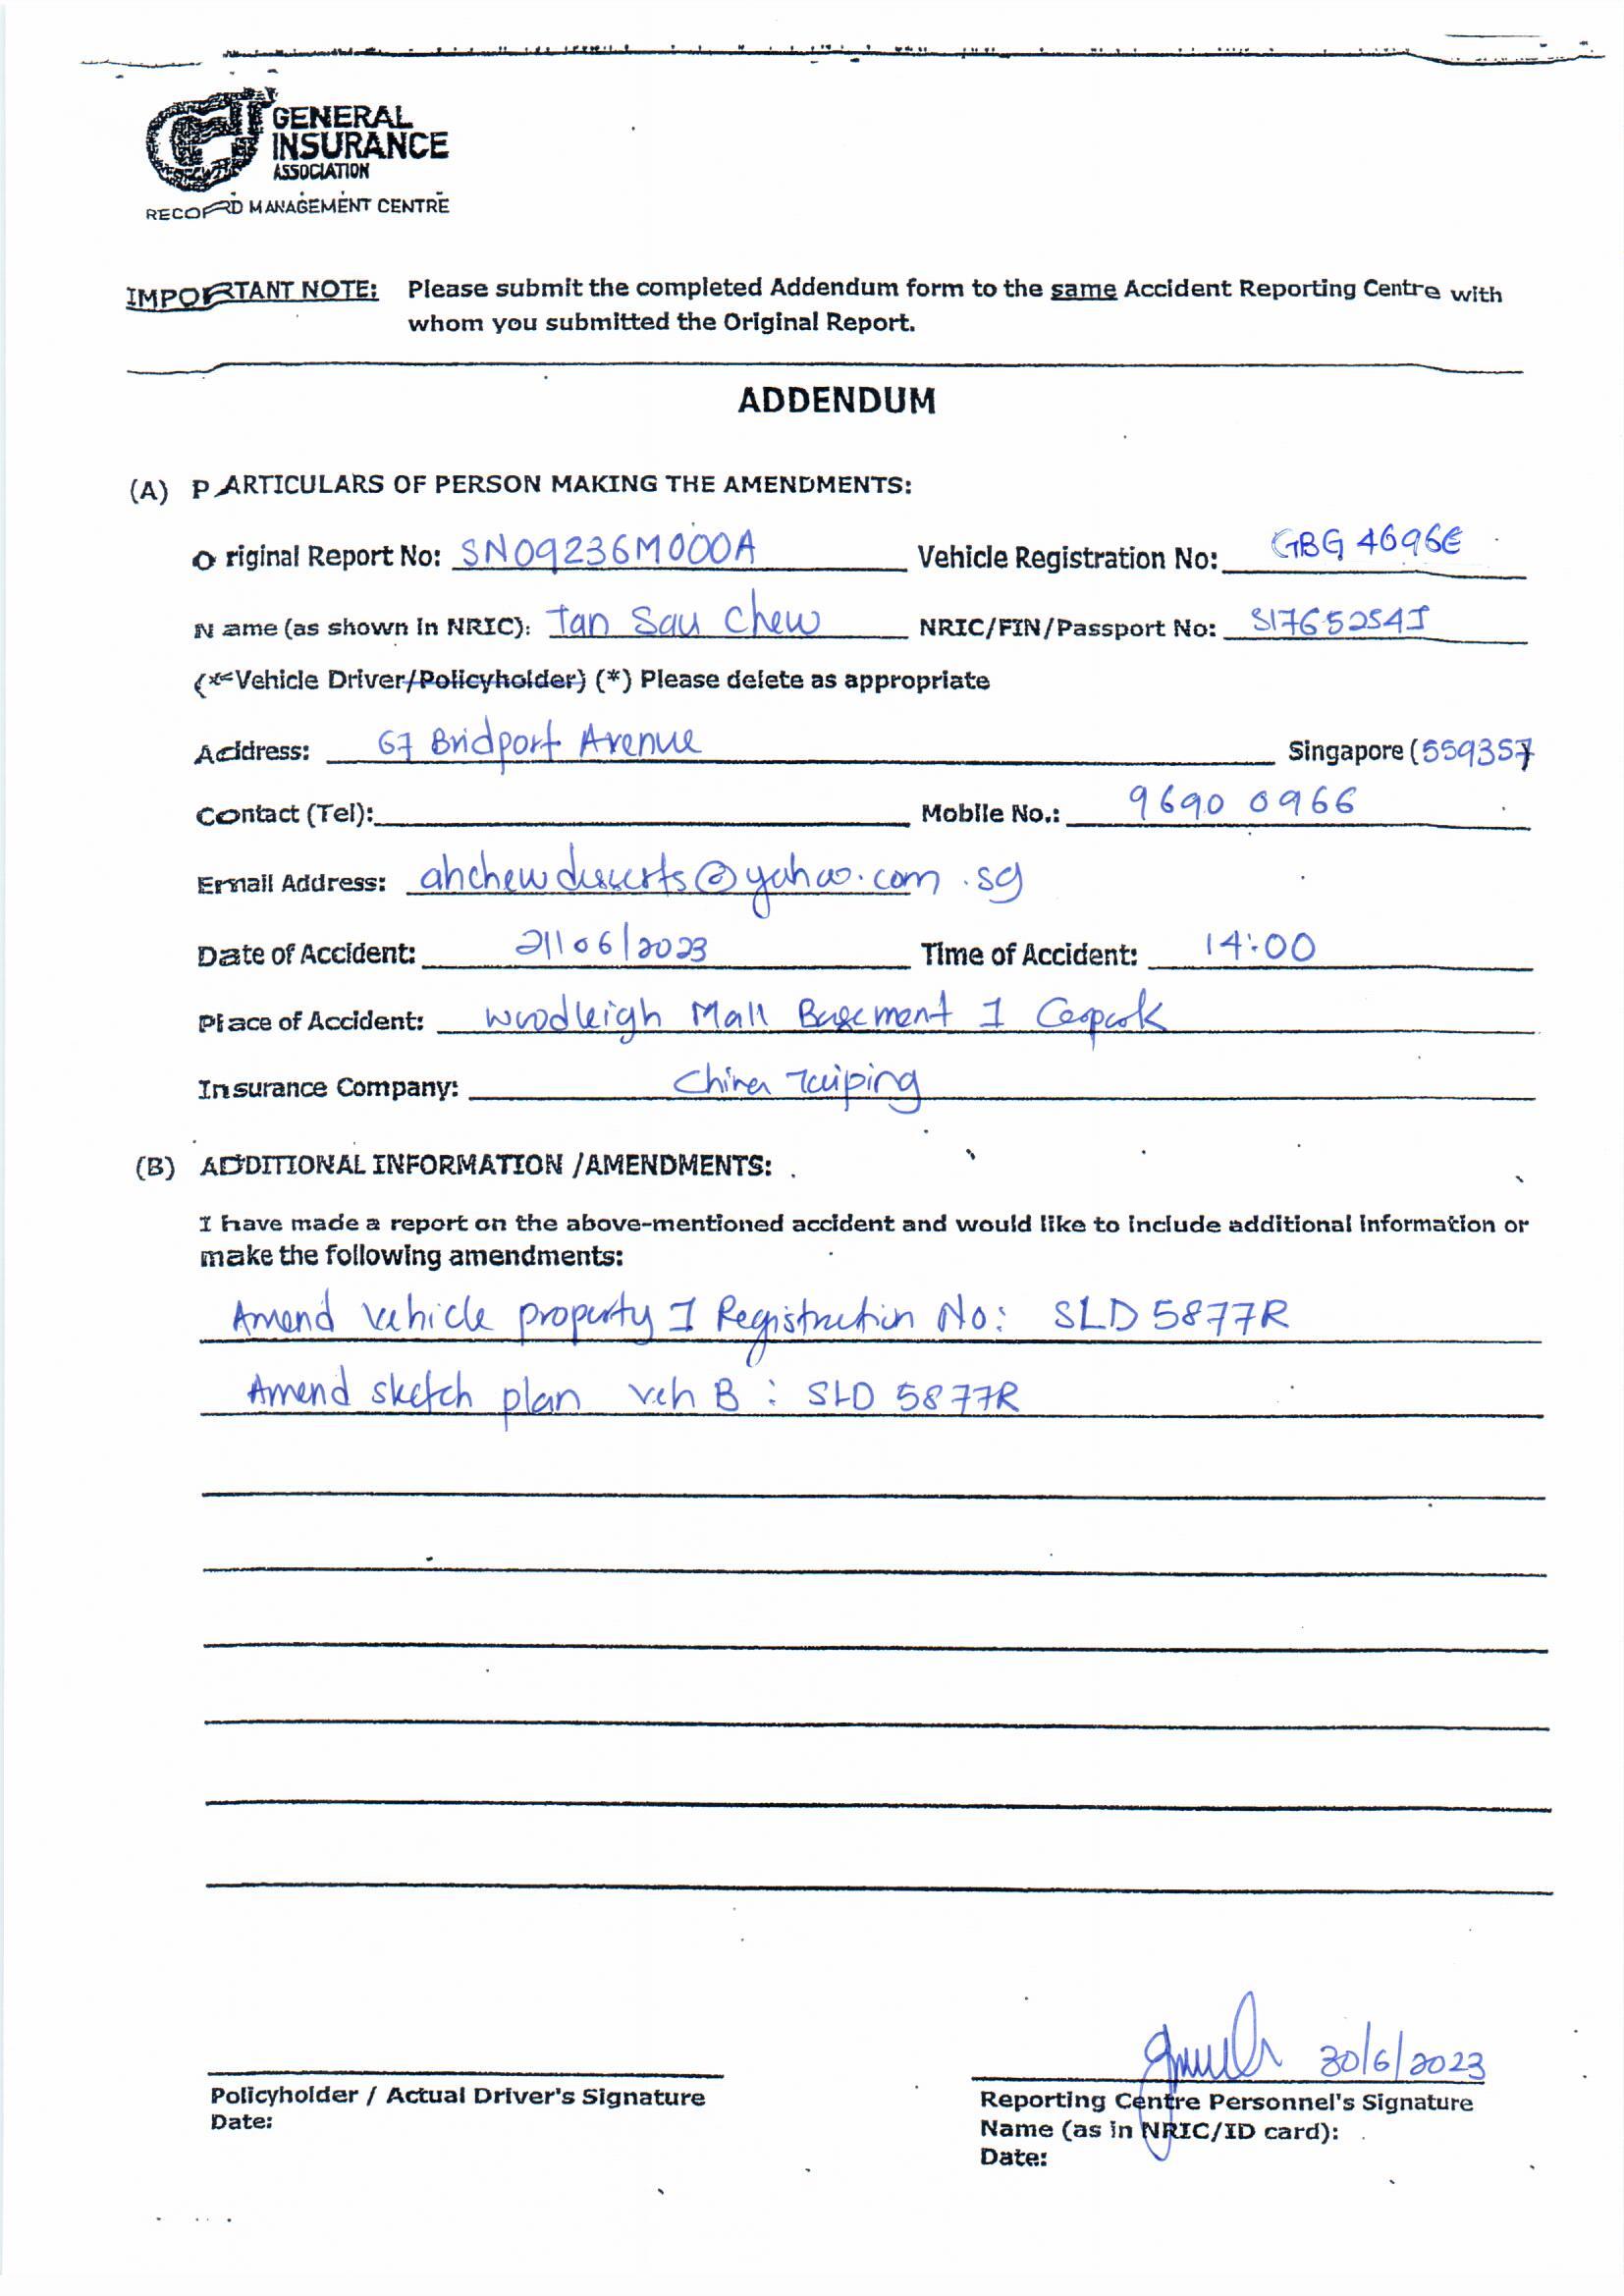 GENERAL
INSURANCE
ASSOCIATION
RECORD MANAGEMENT CENTRE
IMPORTANT NOTE: Please submit the completed Addendum form to the same Accident Reporting Centre with
whom you submitted the Original Report.
ADDENDUM
(A) PARTICULARS OF PERSON MAKING THE AMENDMENTS:
Original Report No: SN09236M000A Vehicle Registration No: GBG 4696E
Name (as shown in NRIC): Tan Sau Chew NRIC/FIN/Passport No: S1765254J
(*Vehicle Driver/Policyholder) (*) Please delete as appropriate
Address: 67 Bridport Avenue Singapore (559357)
Contact (Tel): Mobile No.: 9690 0966
Email Address: ahchewdesserts@yahoo.com.sg
Date of Accident: 21/06/2023 Time of Accident: 14:00
Place of Accident: Woodleigh Mall Basement 1 Carpark
Insurance Company: China Taiping
(B) ADDITIONAL INFORMATION /AMENDMENTS:
I have made a report on the above-mentioned accident and would like to include additional information or
make the following amendments:
Amend vehicle property 1 Registration No: SLD 5877R
Amend sketch plan veh B : SLD 5877R
30/6/2023
Policyholder / Actual Driver's Signature Reporting Centre Personnel's Signature
Date: Name (as in NRIC/ID card):
Date: